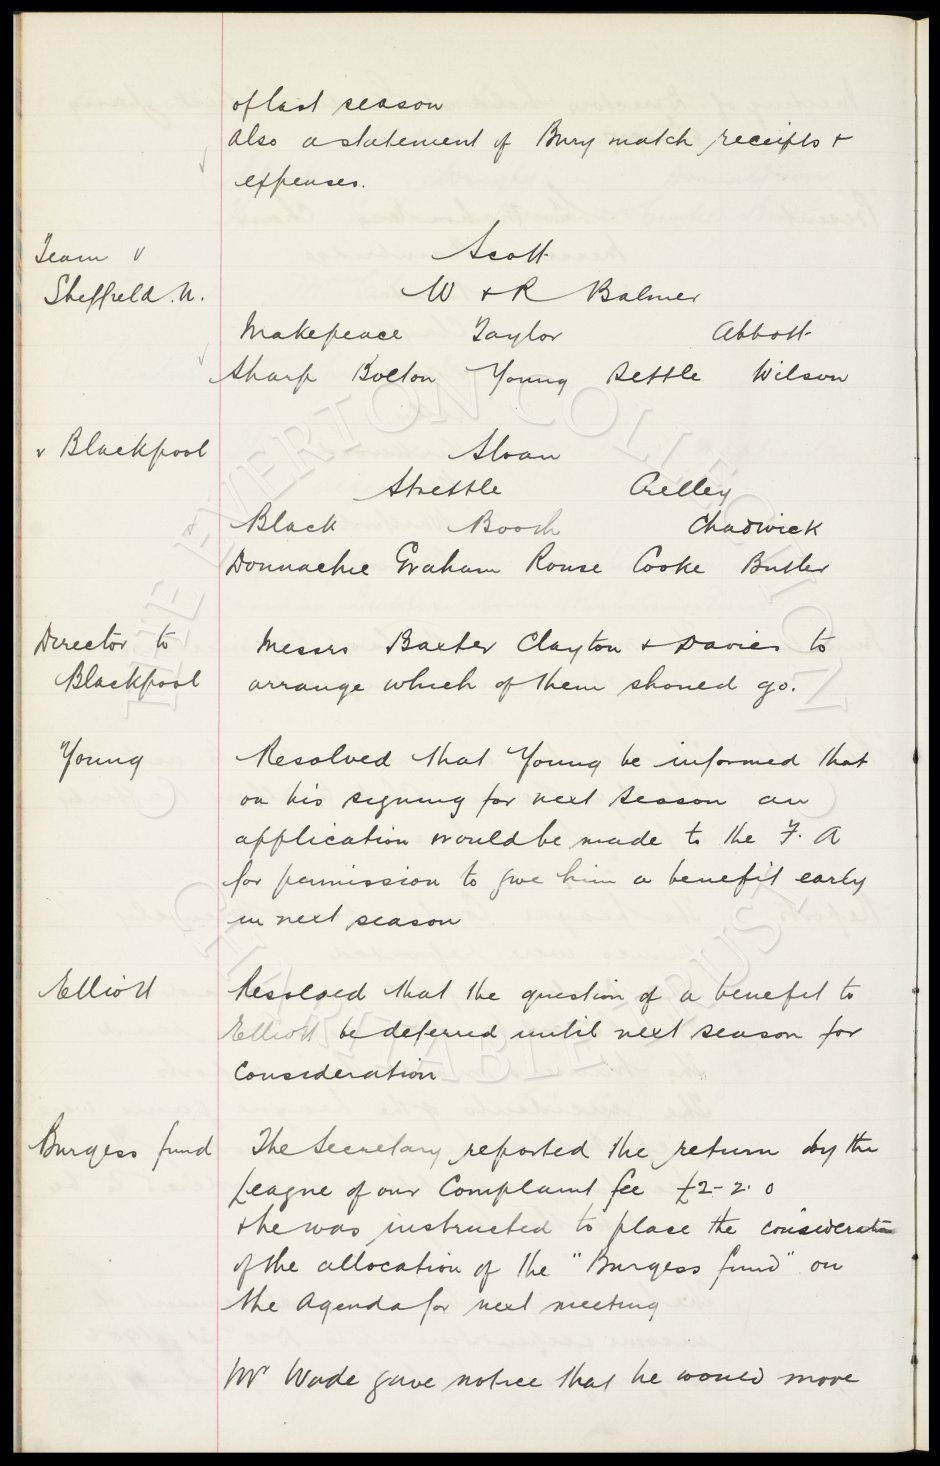 of last season
also a statement of Bury match receipts +
expenses.
Team v Scott
Sheffield. U. W + R Balmer
Makepeace Taylor Abbott
Sharp Bolton Young Settle Wilson
v Blackpool Sloan
Strettle Crelley
Black Booth Chadwick
Donnachie Graham Rouse Cooke Butler
Director to Messrs Baxter Clayton + Davies to
Blackpool arrange which of them should go.
Young Resolved that Young be informed that
on his signing for next season an
application would be made to the F. A
for permission to give him a benefit early
in next season
Elliott Resolved that the question of a benefit to
Elliott be deferred until next season for
consideration
Burgess fund The Secretary reported the return by the
League of our Complaint fee £2-2.0
+ he was instructed to place the consideration
of the allocation of the "Burgess fund" on
the Agenda for next meeting
Mr Wade gave notice that he would move
THE EVERTON COLLECTION
CHARITABLE TRUST